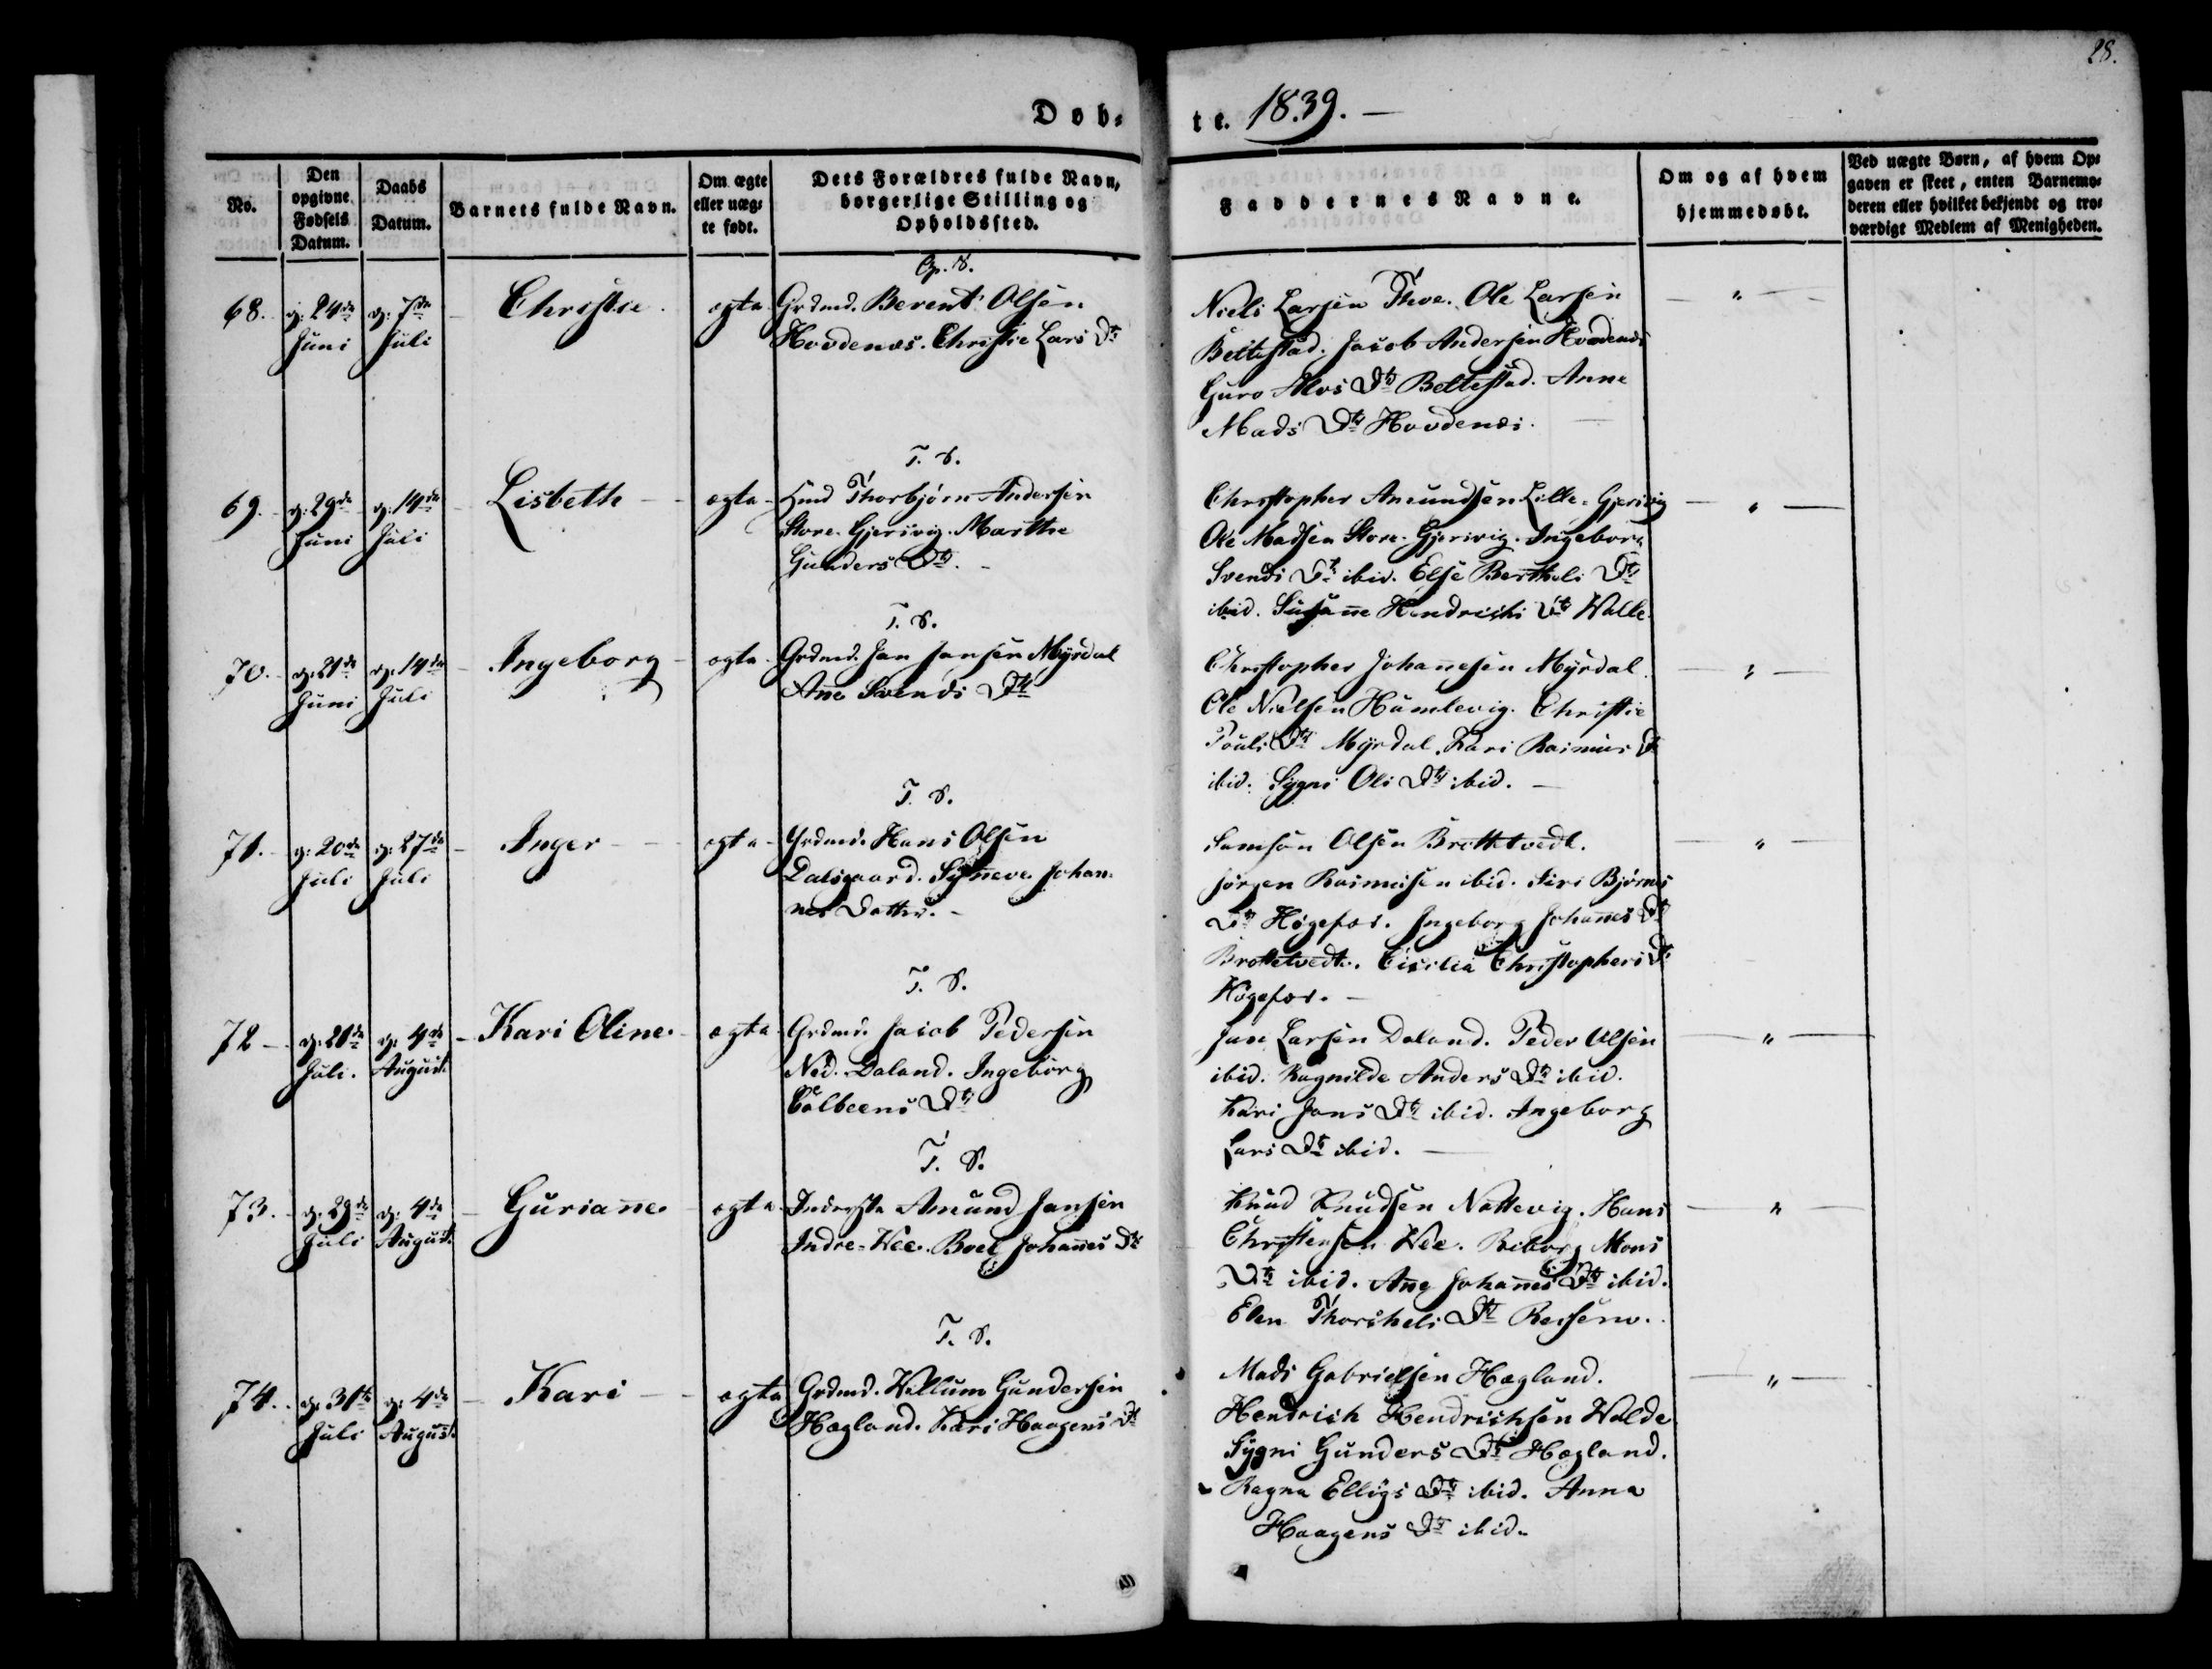 28.
Døb-
te. 1839.
No.
Den opgivne Fødsels Datum.
Daabs Datum.
Barnets fulde Navn.
Om ægte eller uægte født.
Dets Forældres fulde Navn, borgerlige Stilling og Opholdssted.
Faddernes Navne.
Om og af hvem hjemmedøbt.
Ved uægte Børn, af hvem Opgaven er skeet, enten Barnemoderen eller hvilket bekjendt og troværdigt Medlem af Menigheden.
68. d: 24de Juni
d: 7de Juli
Christie
ægte
Grdmd. Berent Olsen
Hovdenæs. Christie Lars Dtr
Niels Larsen Thve. Ole Larsen
Jacob Andersen Hovdenæs
Guro Dtr Anne
Mads Dtr Hovdenæs.
69. d: 29de Juni
d: 14de Juli
Lisbeth
ægte
T. S.
Thorbjørn Andersen
Store-Gjerivig. Marthe
Gunders Dtr.
Christopher Amundsen Lille-Gjerivig
Ole Madsen Store-Gjerivig. Ingeborg
Svends Dtr ibid. Else Berthels Dtr
ibid. Susanne Hendrichs Dtr Walle.
70. d: 21de Juni
d: 14de Juli
Ingeborg
ægte
T. S.
Grdmd. Jan Jansen Myrdal
Ane Svends Dtr
Christopher Johannesen Myrdal.
Ole Nielsen Humlevig. Christie
Pouls Dtr Myrdal. Kari Rasmus Dtr
ibid. Sygni Ols Dtr ibid.
71. d: 20de Juli
d: 27de Juli
Inger
ægte
T. S.
Grdmd. Hans Olsen
Dalsgaard. Synneve Johan-
nes Datter.
Samson Olsen Brottetvedt.
Jørgen Rasmusen ibid. Siri Bjørns
Dtr Høgefos. Ingeborg Johannes Dtr
Brottetvedt. Cicilia Christophers Dtr
Høgefos.
72 d: 21de Juli.
d: 4de August.
Kari Oline.
ægte
T. S.
Grdmd. Jacob Pedersen
Ned. Daland. Ingeborg
Colbeens Dtr
Jan Larsen Daland. Peder Olsen
ibid. Ragnilde Anders Dtr ibid.
Kari Jans Dtr ibid. Ingeborg
Lars Dtr ibid.
73. d: 29de Juli
d: 4de August.
Guriane.
ægte
T. S.
Inderste Amund Jansen
Indre-Wee. Boel Johannes Dtr
Knud Knudsen Nottevig. Hans
Christensen Wee. Reborg Mons
Dtr ibid. Ane Johannes Dtr ibid.
Elen Dtr
74. d: 31te Juli
d: 4de August.
Kari
ægte
T. S.
Grdmd. Willum Gundersen
Hægland. Kari Haagens Dtr
Mads Gabrielsen Hægland.
Hendrich Hendrichsen Walde
Sygni Gunders Dtr Hægland.
Ragna Elligs Dtr ibid. Anna
Haagens Dtr ibid.